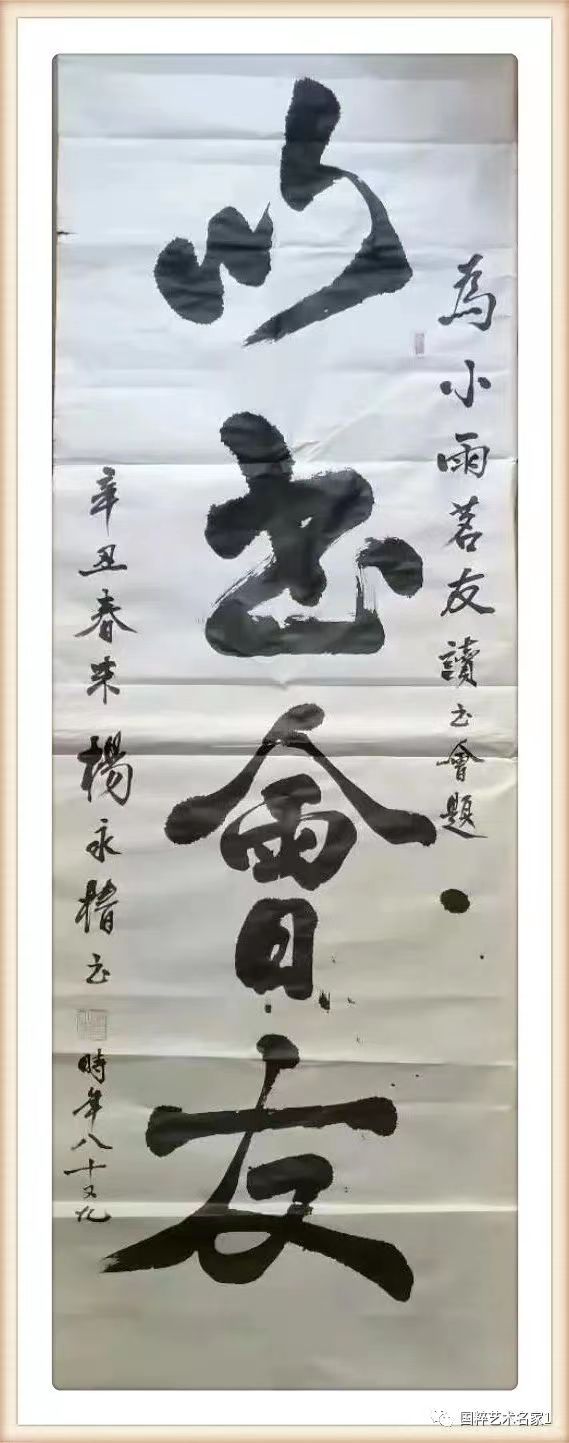 為小雨茗友讀書會題
以書會友
辛丑春末楊永楷書
時年八十又九
国粹艺术名家1